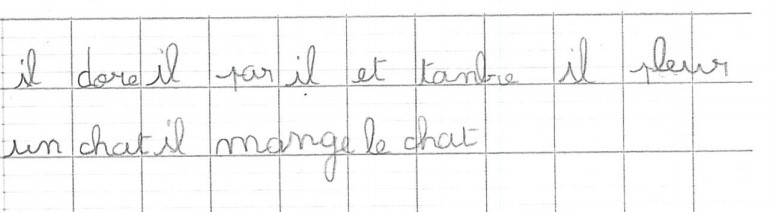 il dore il par il et tanbre il pleur
un chat il mange le chat